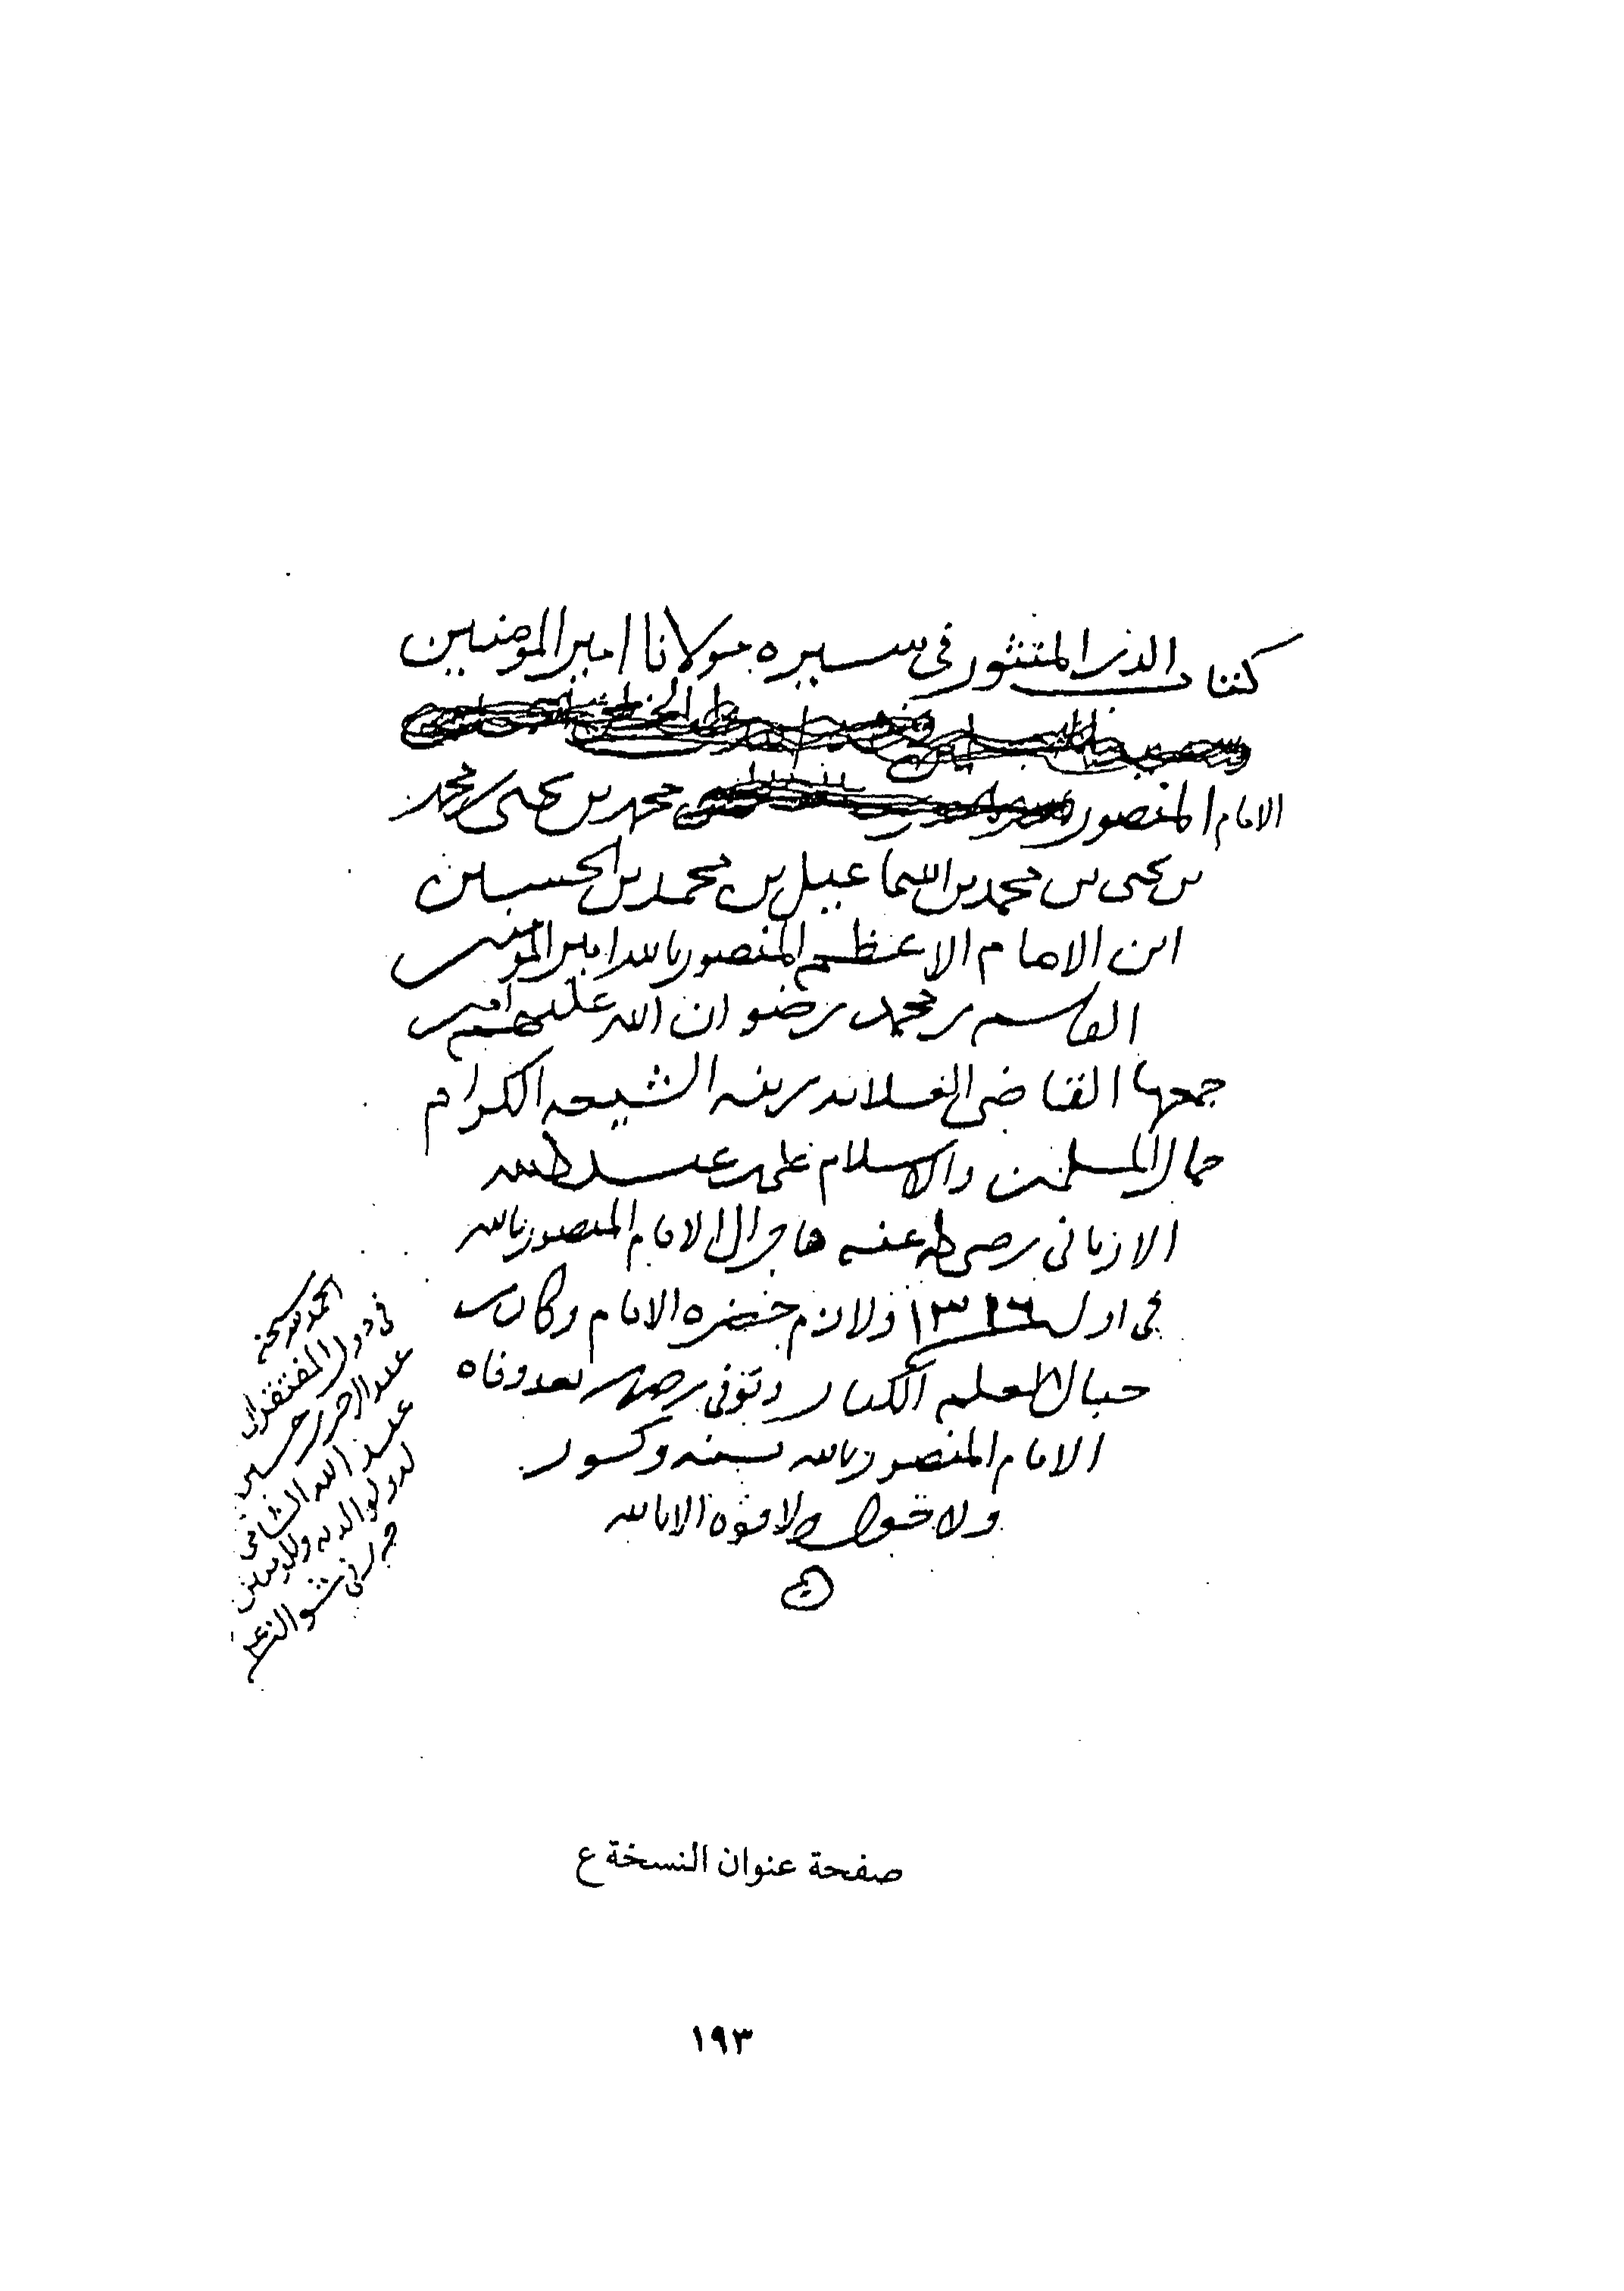 كتاب الدر المنثور في سيره مولانا امير المومنين
الامام المنصور محمد بن يحيى بن محمد
بن يحيى بن محمد بن اسماعيل بن محمد بن الحسين
ابن الامام الاعظم المنصور بالله امير المومنين
القاسم بن محمد رضوان الله عليهم امين
جمعها القاضي العلامه زينه الشيعه الكرام
جمال المسلمين والاسلام علي بن عبدالله
الارياني رضي الله عنه هاجر الى الامام المنصور بالله
في اول ١٣١٦ ولازم حضره الامام وكان من
العلم الكبار وتوفي بعد وفاه
الامام المنصور بالله بسنه وكسور
ولا حول ولا قوه الا بالله
الحمد لله
في دول المفتقر الى
عبد الرحمن بن حسين
عبد الله الشامي
صفحة عنوان النسخة ع
١٩٣